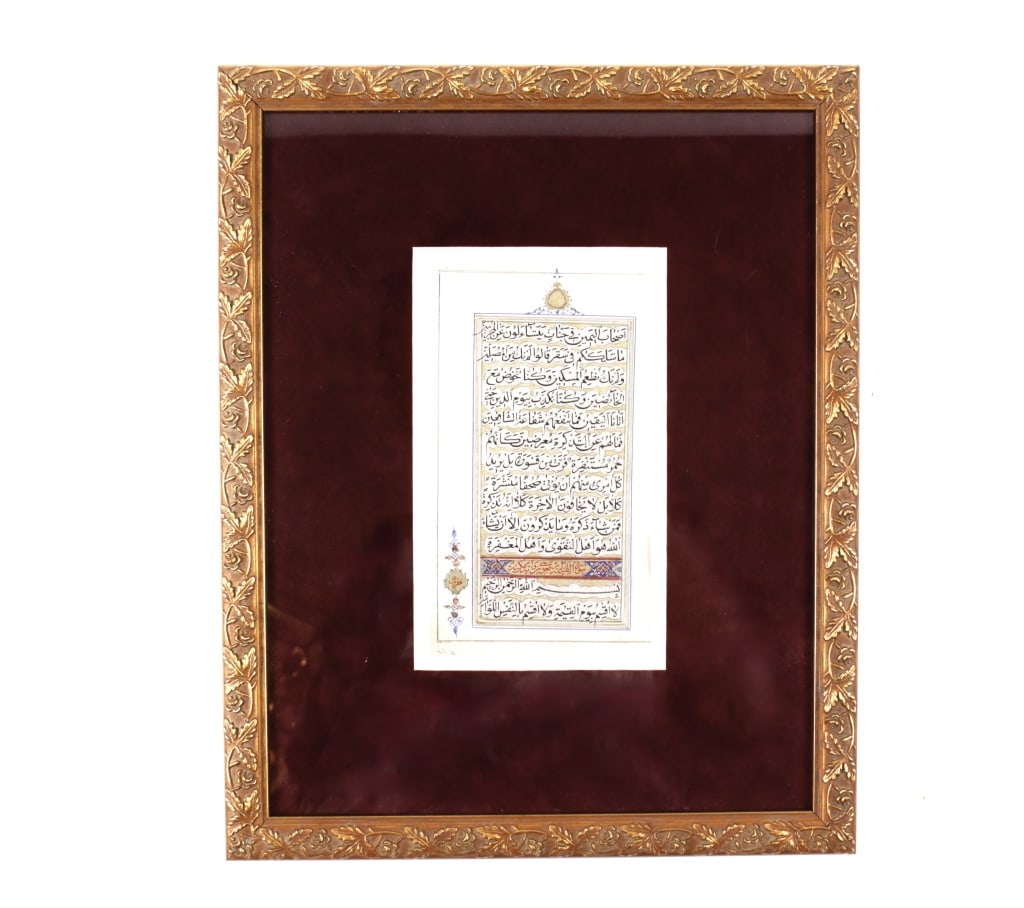 أصحاب اليمين في جنات يتساءلون عن المجرمين
ما سلككم في سقر قالوا لم نك من المصلين
ولم نك نطعم المسكين وكنا نخوض مع
الخائضين وكنا نكذب بيوم الدين حتى
أتانا اليقين فما تنفعهم شفاعة الشافعين
فمالهم عن التذكرة معرضين كأنهم
حمر مستنفرة فرت من قسورة بل يريد
كل امرئ منهم أن يؤتى صحفا منشرة
كلا بل لا يخافون الآخرة كلا إنه تذكرة
فمن شاء ذكره وما يذكرون إلا أن يشاء
الله هو أهل التقوى وأهل المغفرة
بسم الله الرحمن الرحيم
لا أقسم بيوم القيمة ولا أقسم بالنفس اللوا